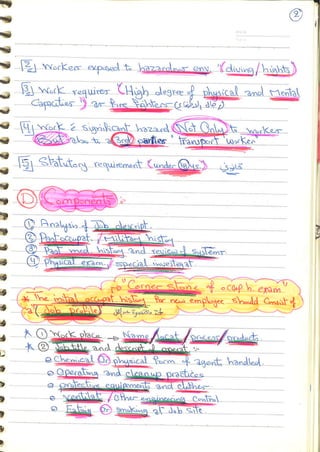 2
[2] Worker exposed to hazardous env. (diving / hights)
[3] Work requires (High degree of physical and Mental
Capacities) as Fire Fighters
[4] Work c̄ significant hazard Not Only to worker
But also to a 3rd parties "transport worker
[5] Statutory requirement (under 18 yrs.) قانون
D Components :-
① Analysis of Job descript.
② Past occupat. / Military history
③ Past med. history and review of systems.
④ Physical exam. / special investigat
"Corner Stone of occup h. exam"
* The initial occupat history for new employee should Consist of
a (Job profile)
* ① Work place → Name / locat / process / products.
* ② Job title and descript of operat :-
Chemical Or physical Form of agent handled.
Operating and cleanup practices
protective equipments and clothes
ventilat / other engineering Control
Eating Or smoking at Job site.